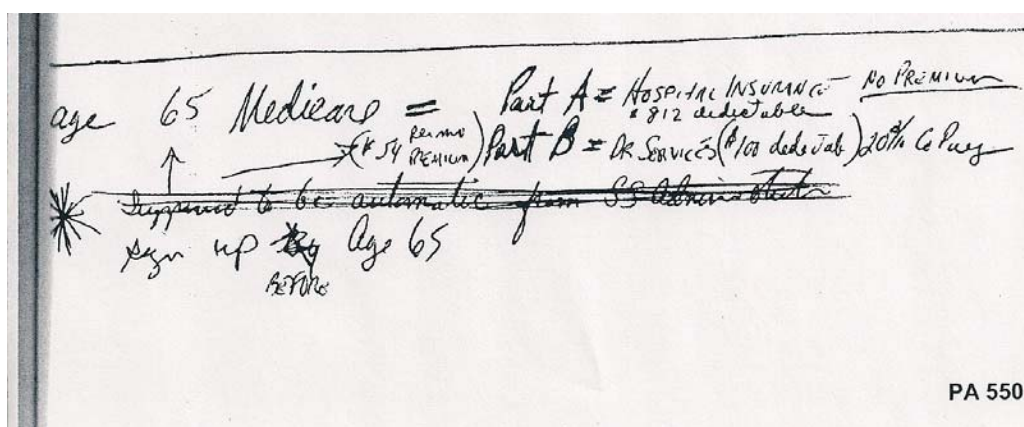 age 65 Medicare = Part A = HOSPITAL INSURANCE NO PREMIUM
$812 dedectable
($54 PER MO PREMIUM) Part B = DR SERVICES ($100 dedectab) 20% Co Pay
Supposed to be automatic from SS Administrator
sign up By Age 65
BEFORE
PA 550